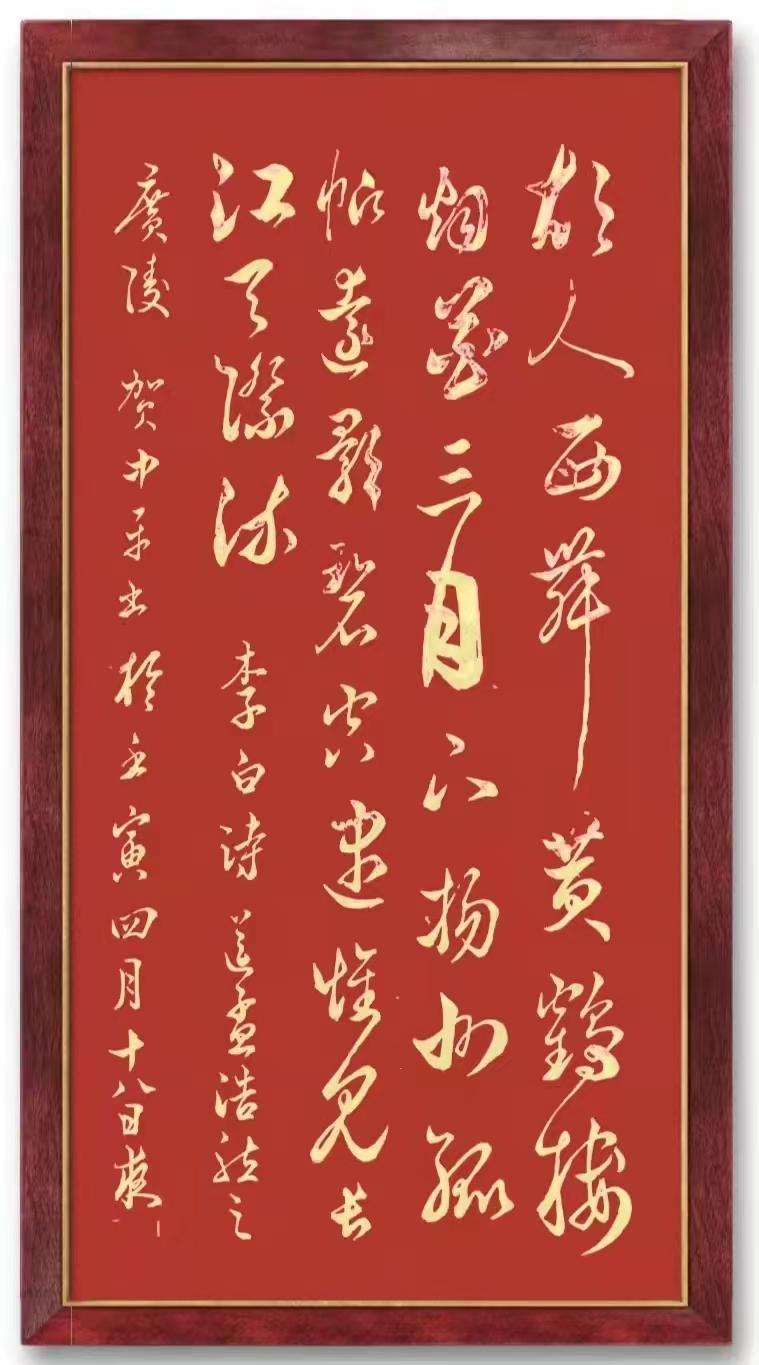 故人西辞黄鹤楼
烟花三月下扬州孤
帆遠影碧空盡惟見長
江天際流 李白诗 送孟浩然之
廣陵 贺中平书於壬寅四月十八日夜